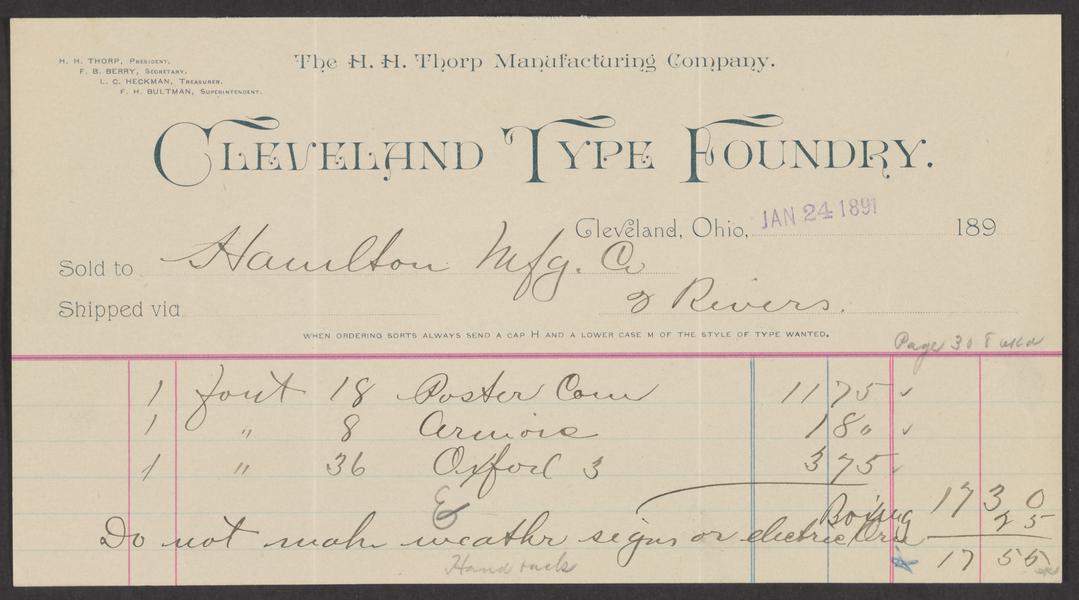 H. H. THORP, PRESIDENT.
F. B. BERRY, SECRETARY.
L. C. HECKMAN, TREASURER.
F. H. BULTMAN, SUPERINTENDENT.
The H. H. Thorp Manufacturing Company.
CLEVELAND TYPE FOUNDRY.
Cleveland, Ohio, JAN 24 1891 189
Sold to Hamilton Mfg. Co
Shipped via 2 Rivers.
WHEN ORDERING SORTS ALWAYS SEND A CAP H AND A LOWER CASE M OF THE STYLE OF TYPE WANTED.
Page 308
1 font 18 Poster Com 11 75 ✓
1 " 8 18 " ✓
1 " 36 Oxford 3 3 75 ✓
17 30
Boxing 25
Do not make weathr signs or electric
17 55